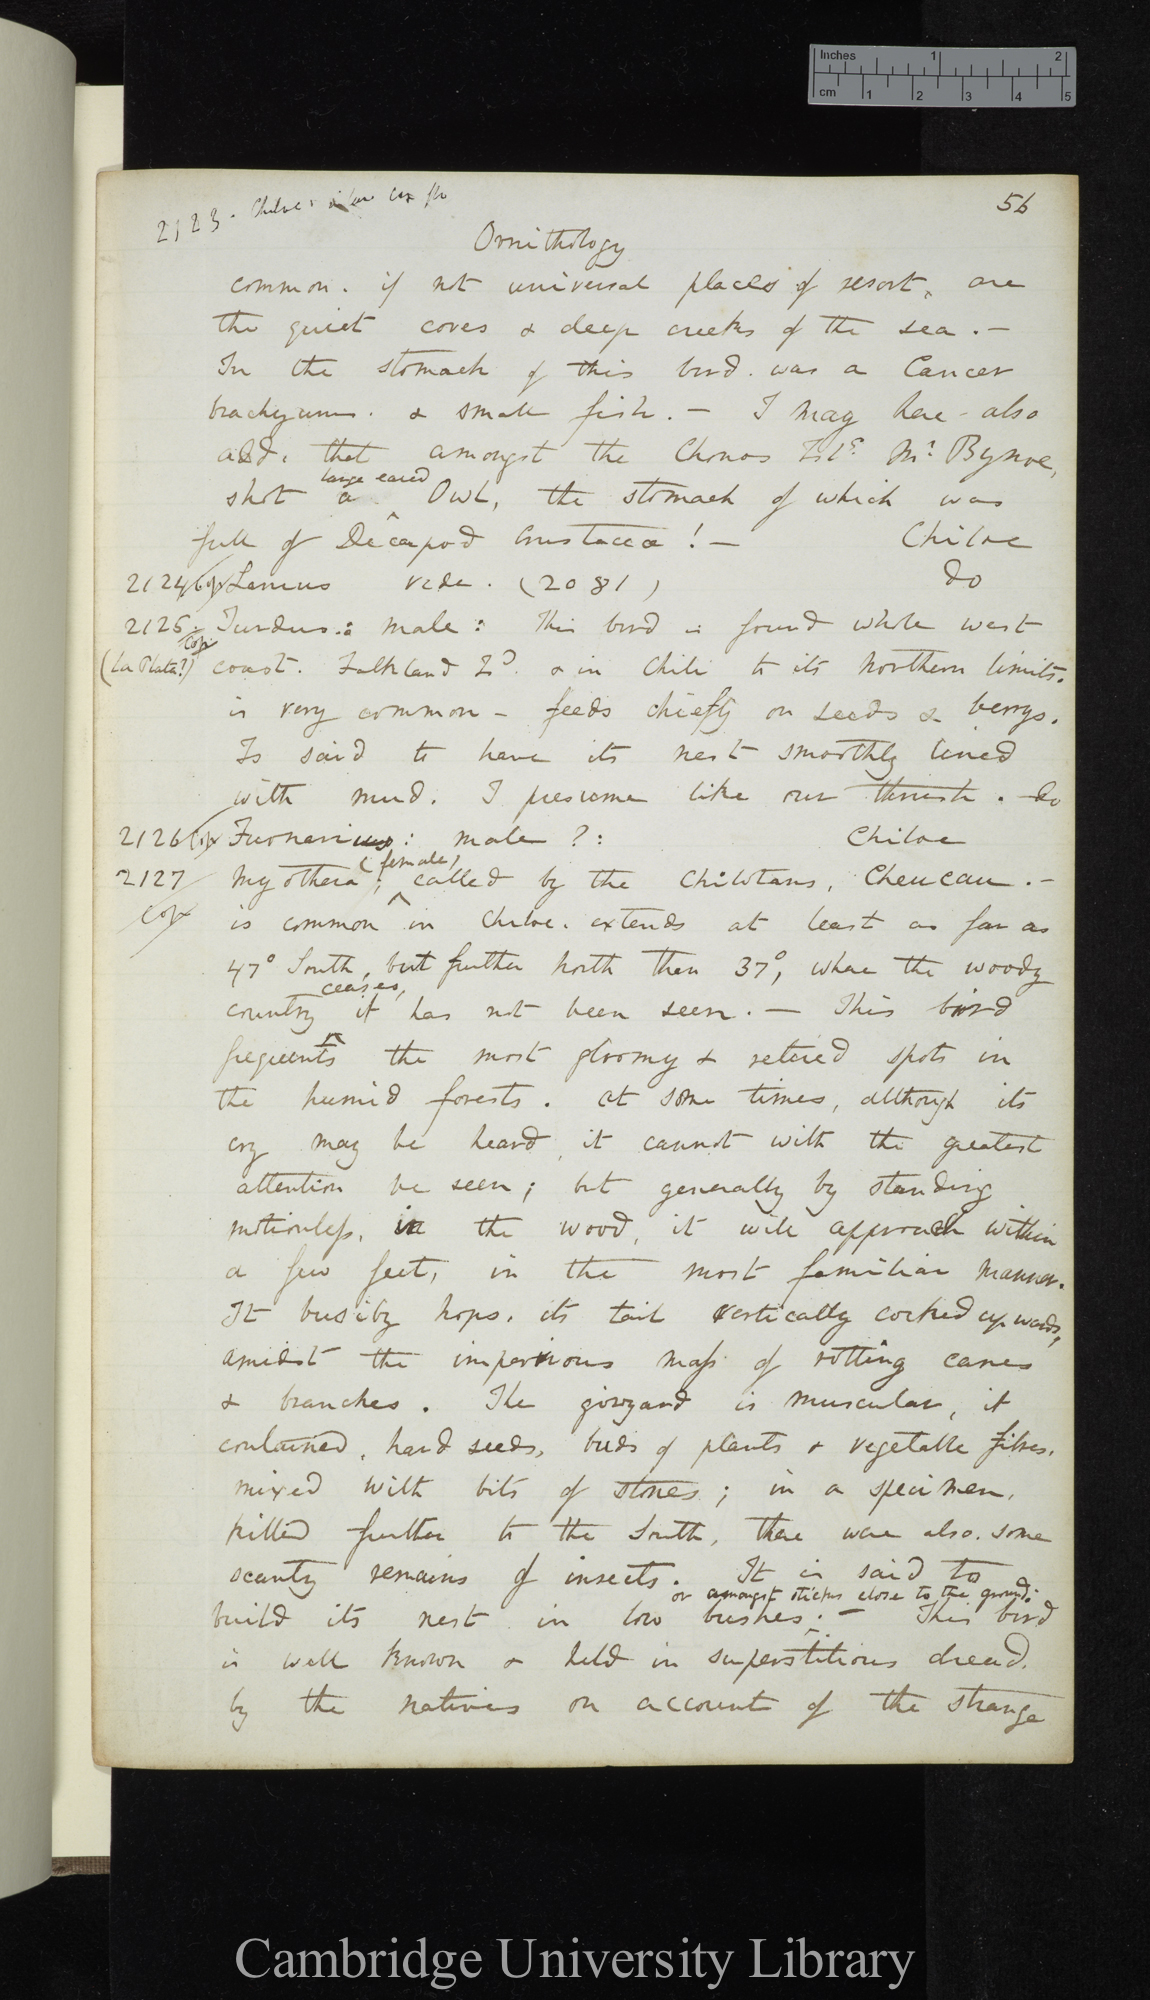 Inches 1 2
cm 1 2 3 4 5
2123.
56
Ornithology
common. if not universal places of resort, are
the quiet coves & deep creeks of the sea. —
In the stomach of this bird. was a Cancer
brachyurus. & small fish. — I may here also
add, that amongst the Chonos Isls. Mr. Bynoe,
large eared
shot a Owl, the stomach of which was
full of Decapod Crustacea! — Chiloe
2124 Copx Larus vide. (2081) do
2125. Turdus.: male: This bird is found whole west
Copx
(La Plata?) coast. Falkland Id. & in Chili to its Northern limits.
is very common — feeds chiefly on seeds & berrys.
Is said to have its nest smoothly lined
with mud. I presume like our thrush. do
2126 Copx Furnarius: male?: Chiloe
(female)
2127 Myothera; called by the Chilotans, Cheucau. —
Copx is common in Chiloe. extends at least as far as
47° South, but further North then 37°, where the woody
ceases,
country it has not been seen. — This bird
frequents the most gloomy & retired spots in
the humid forests. at some times, although its
cry may be heard, it cannot with the greatest
attention be seen; but generally by standing
motionless, in the wood, it will approach within
a few feet, in the most familiar manner.
It busily hops. its tail vertically cocked upwards,
amidst the impervious mass of rotting canes
& branches. The gizzard is muscular, it
contained, hard seeds, buds of plants & vegetable fibres,
mixed with bits of stones; in a specimen,
killed further to the South, there were also some
scanty remains of insects. It is said to
or amongst sticks close to the ground.
build its nest in low bushes. — This bird
is well known & held in superstitious dread.
by the natives on account of the strange
Cambridge University Library